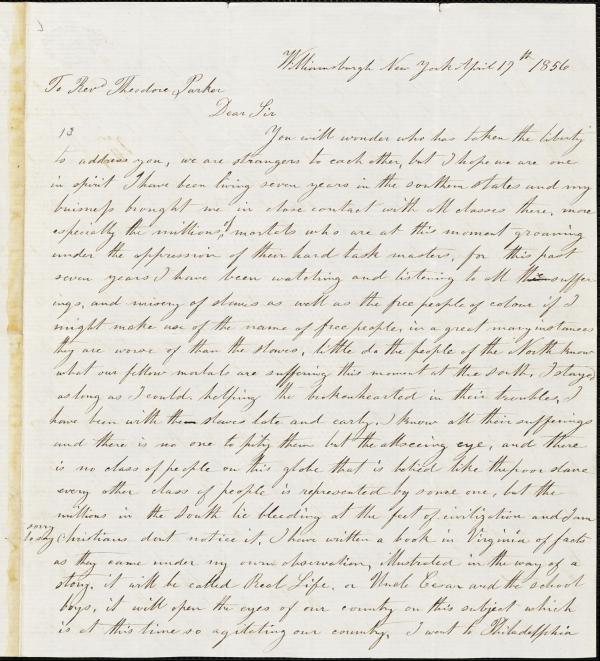 Williamsburgh New York April 19th 1856
To Revd Theodore Parker
Dear Sir
13
You will wonder who has taken the liberty
to address you, we are strangers to each other, but I hope we are one
in spirit I have been living seven years in the southern states and my
buisness brought me in close contact with all classes there, more
especially the millions of mortals who are at this moment groaning
under the oppression of their hard task masters, for this past
seven years I have been watching and listening to all the suffer
ings, and misery of slaves as well as the free people of colour if I
might make use of the name of free people, in a great many instances
they are worse of than the slaves, little do the people of the North know
what our fellow mortals are suffering this moment at the south, I stayed
as long as I could helping the brokenhearted in their troubles, I
have been with the slaves late and early, I know all their sufferings
and there is no one to pity them but the allseeing eye, and there
is no class of people on this globe that is belied like the poor slave
every other class of people is represented by some one, but the
millions in the South lie bleeding at the feet of civilization and I am
sorry to say Christians dont notice it. I have written a book in Virginia of facts
as they came under my own observation, illustrated in the way of a
story. it will be called Real Life. or Uncle Cesar and the school
boys, it will open the eyes of our country on this subject which
is at this time so agitating our country, I went to Philadelphia